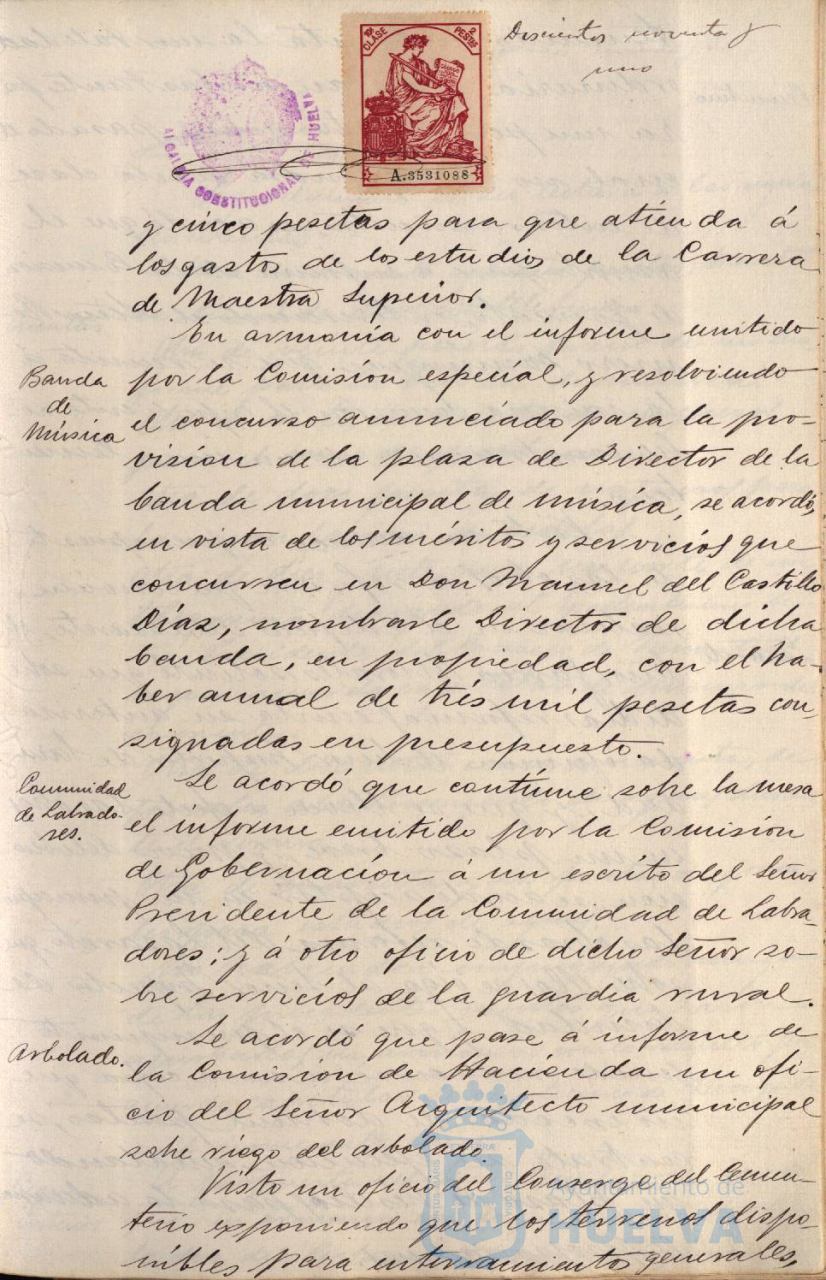 Doscientos noventa y
uno
10ª CLASE
2 PESTAS
A.3531088
ALCALDIA CONSTITUCIONAL DE HUELVA
y cinco pesetas para que atienda á
los gastos de los estudios de la Carrera
de Maestra Superior.
En armonía con el informe emitido
Banda
de
Música
por la Comisión especial, y resolviendo
el concurso anunciado para la pro-
visión de la plaza de Director de la
banda municipal de música, se acordó,
en vista de los méritos y servicios que
concurren en Don Manuel del Castillo
Díaz, nombrarle Director de dicha
banda, en propiedad, con el ha-
ber anual de trés mil pesetas con-
signadas en presupuesto.
Comunidad
de Labrado-
res.
Se acordó que contínue sobre la mesa
el informe emitido por la Comisión
de Gobernación á un escrito del Señor
Presidente de la Comunidad de Labra-
dores; y á otro oficio de dicho Señor so-
bre servicios de la guardia rural.
Arbolado.
Se acordó que pase á informe de
la Comisión de Hacienda un ofi-
cio del Señor Arquitecto municipal
sobre riego del arbolado.
Visto un oficio del Conserge del Cemen-
terio exponiendo que los terrenos dispo-
nibles para enterramientos generales,
Ayuntamiento de
HUELVA